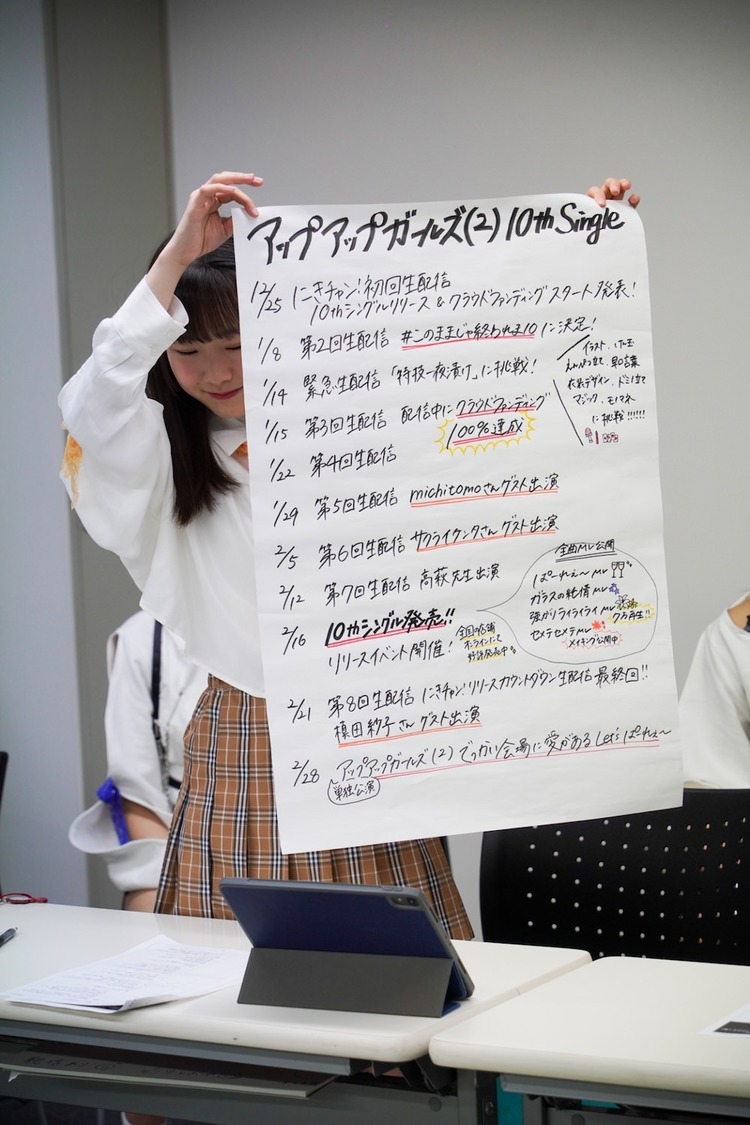 アップアップガールズ(2) 10th Single
12/25 にきチャン!初回生配信
10thシングルリリース & クラウドファンディングスタート発表!
1/8 第2回生配信 #このままじゃ終われま10 に決定!
1/14 緊急生配信「特技一夜漬け」に挑戦!
イラスト、けん玉
えんぴつ立て、早口言葉
衣装デザイン、ドミノ立て
マジック、モノマネ
に挑戦!!!!!!
1/15 第3回生配信 配信中にクラウドファンディング
100%達成
1/22 第4回生配信
1/29 第5回生配信 michitomoさんゲスト出演
2/5 第6回生配信 サクライケンタさんゲスト出演
2/12 第7回生配信 高萩先生出演
2/16 10thシングル発売!!
リリースイベント開催!
全国の店舗
オンラインにて
好評発売中
全曲MV公開
ぱーれぇ〜MV
ガラスの純情MV
強がりライライライMV
7万再生!!
セメテセメテMV
メイキング公開中
2/21 第8回生配信 にきチャン!リリースカウントダウン生配信 最終回!!
槙田紗子さんゲスト出演
2/28 〜アップアップガールズ(2) でっかい会場に愛がある Let's ぱーれぇ〜
単独公演